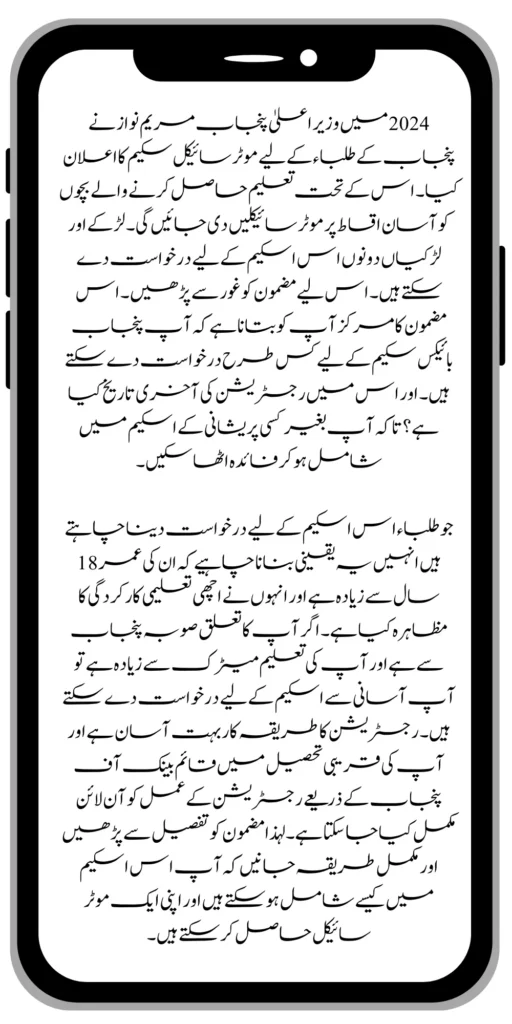 2024 میں وزیر اعلیٰ پنجاب مریم نواز نے
پنجاب کے طلباء کے لیے موٹر سائیکل سکیم کا اعلان
کیا۔ اس کے تحت تعلیم حاصل کرنے والے بچوں
کو آسان اقساط پر موٹر سائیکلیں دی جائیں گی۔ لڑکے اور
لڑکیاں دونوں اس اسکیم کے لیے درخواست دے
سکتے ہیں۔ اس لیے مضمون کو غور سے پڑھیں۔ اس
مضمون کا مرکز آپ کو بتانا ہے کہ آپ پنجاب
بائیکس سکیم کے لیے کس طرح درخواست دے سکتے
ہیں۔ اور اس میں رجسٹریشن کی آخری تاریخ کیا
ہے؟ تاکہ آپ بغیر کسی پریشانی کے اسکیم میں
شامل ہو کر فائدہ اٹھا سکیں۔
جو طلباء اس اسکیم کے لیے درخواست دینا چاہتے
ہیں انہیں یہ یقینی بنانا چاہیے کہ ان کی عمر 18
سال سے زیادہ ہے اور انہوں نے اچھی تعلیمی کارکردگی کا
مظاہرہ کیا ہے۔ اگر آپ کا تعلق صوبہ پنجاب
سے ہے اور آپ کی تعلیم میٹرک سے زیادہ ہے تو
آپ آسانی سے اسکیم کے لیے درخواست دے سکتے
ہیں۔ رجسٹریشن کا طریقہ کار بہت آسان ہے اور
آپ کی قریبی تحصیل میں قائم بینک آف
پنجاب کے ذریعے رجسٹریشن کے عمل کو آن لائن
مکمل کیا جا سکتا ہے۔ لہذا مضمون کو تفصیل سے پڑھیں
اور مکمل طریقہ جانیں کہ آپ اس اسکیم
میں کیسے شامل ہو سکتے ہیں اور اپنی ایک موٹر
سائیکل حاصل کر سکتے ہیں۔